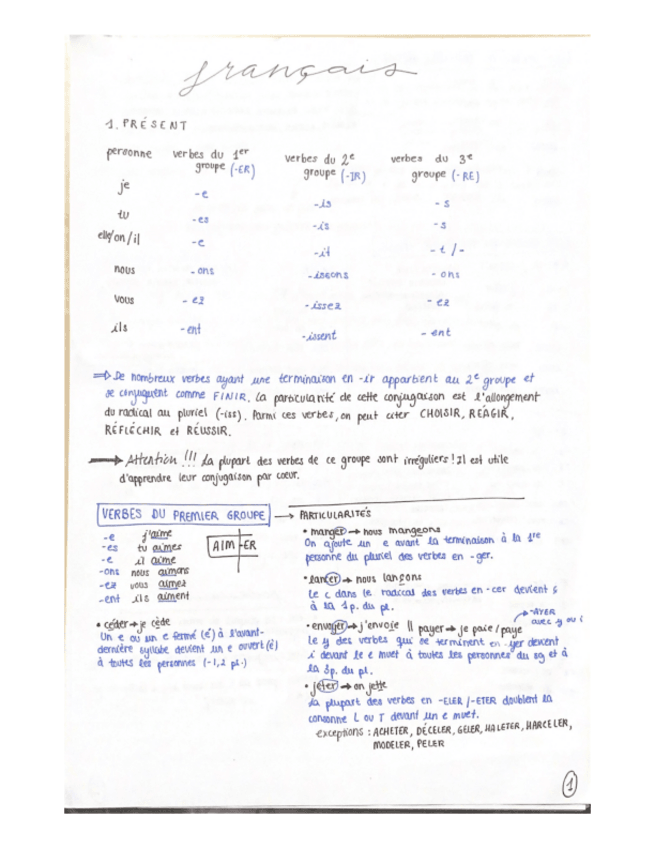 français
1. PRÉSENT
personne verbes du 1er groupe (-ER) verbes du 2e groupe (-IR) verbes du 3e groupe (-RE)
je -e -is -s
tu -es -is -s
elle/on/il -e -it -t/-
nous -ons -issons -ons
vous -ez -issez -ez
ils -ent -issent -ent
⇒ De nombreux verbes ayant une terminaison en -ir appartient au 2e groupe et
se conjuguent comme FINIR. La particularité de cette conjugaison est l'allongement
du radical au pluriel (-iss). Parmi ces verbes, on peut citer CHOISIR, RÉAGIR,
RÉFLÉCHIR et RÉUSSIR.
→ Attention !!! La plupart des verbes de ce groupe sont irréguliers! Il est utile
d'apprendre leur conjugaison par coeur.
VERBES DU PREMIER GROUPE → PARTICULARITÉS
-e j'aime
-es tu aimes
-e il aime
-ons nous aimons
-ez vous aimez
-ent ils aiment
AIM -ER
• céder → je cède
Un e ou un e fermé (é) à l'avant-
dernière syllabe devient un e ouvert (è)
à toutes les personnes (-1,2 pl.)
• manger → nous mangeons
On ajoute un e avant la terminaison à la 1re
personne du pluriel des verbes en -ger.
• lancer → nous lançons
Le c dans le radical des verbes en -cer devient ç
à la 1p. du pl.
• envoyer → j'envoie || payer → je paie / paye
→ -AYER
avec y ou i
Le y des verbes qui se terminent en -yer devient
i devant le e muet à toutes les personnes du sg et à
la 3p. du pl.
• jeter → on jette
La plupart des verbes en -ELER / -ETER doublent la
consonne L ou T devant un e muet.
exceptions : ACHETER, DÉCELER, GELER, HALETER, HARCELER,
MODELER, PELER
1